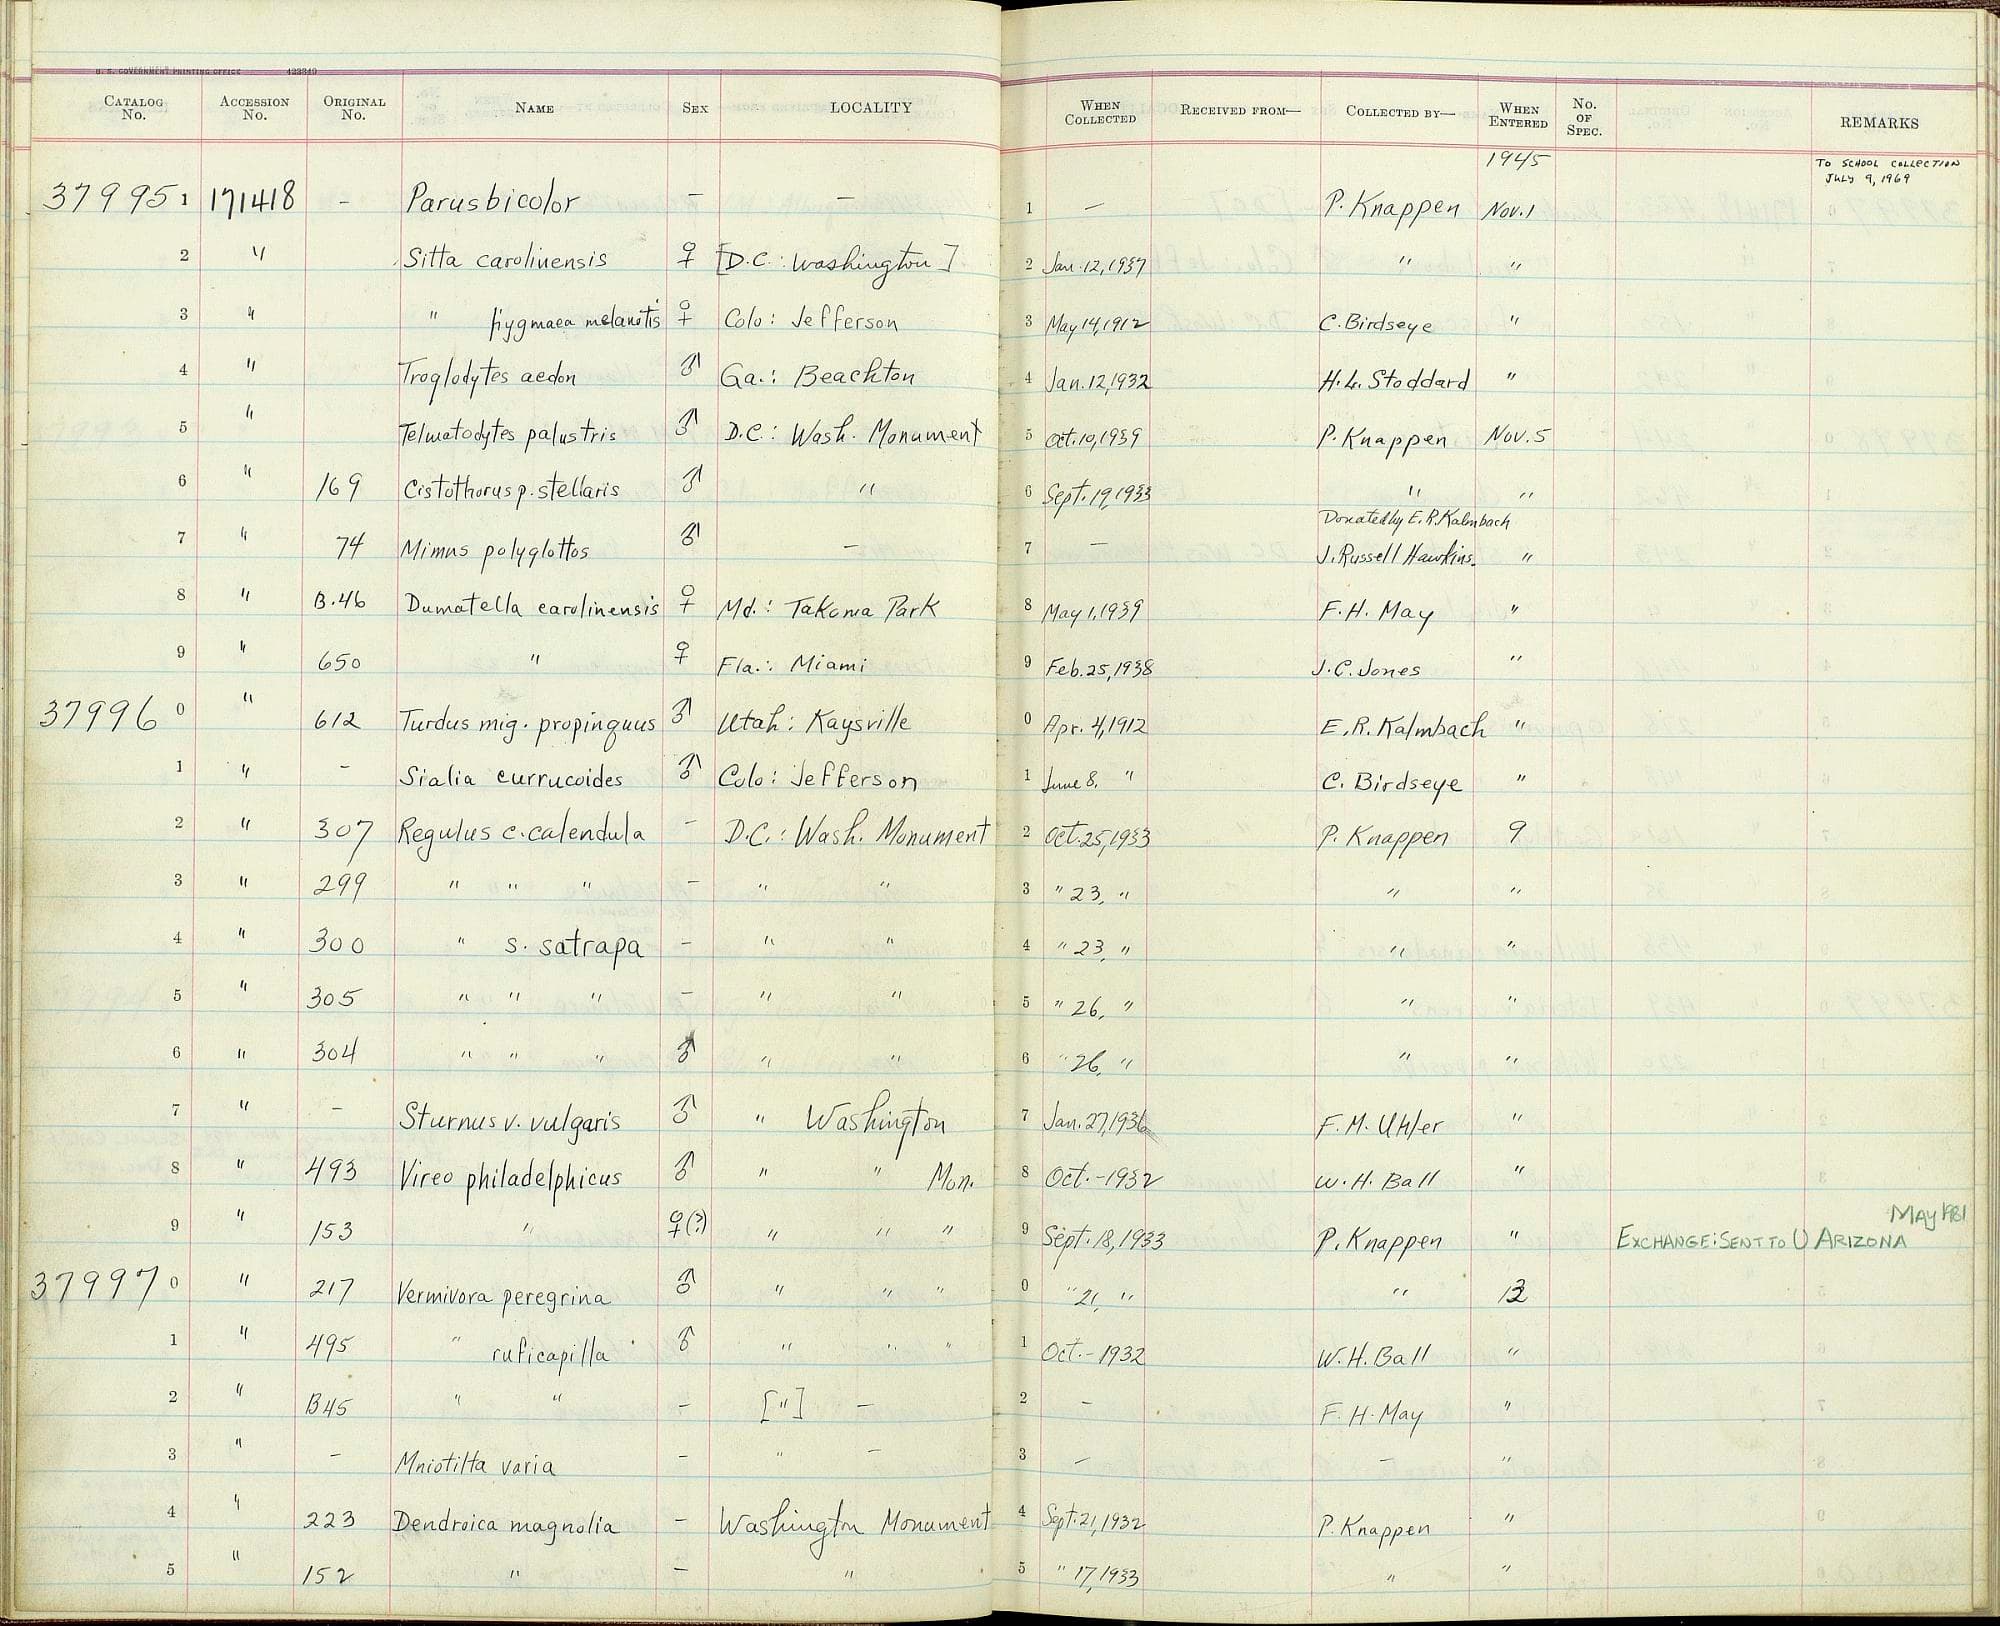 U. S. GOVERNMENT PRINTING OFFICE 423340
CATALOG No. ACCESSION No. ORIGINAL No. NAME SEX LOCALITY WHEN COLLECTED RECEIVED FROM— COLLECTED BY— WHEN ENTERED No. OF SPEC. REMARKS
1945 TO SCHOOL COLLECTION
JULY 9, 1969
37995 1 171418 - Parus bicolor - - 1 - P. Knappen Nov. 1
2 " Sitta carolinensis ♀ [D.C.: Washington] 2 Jan. 12, 1937 " "
3 " " pygmaea melanotis ♀ Colo: Jefferson 3 May 14, 1912 C. Birdseye "
4 " Troglodytes aedon ♂ Ga.: Beachton 4 Jan. 12, 1932 H. L. Stoddard "
5 " Telmatodytes palustris ♂ D.C.: Wash. Monument 5 Oct. 10, 1939 P. Knappen Nov. 5
6 " 169 Cistothorus p. stellaris ♂ " 6 Sept. 19, 1933 " "
Donated by E. R. Kalmbach
7 " 74 Mimus polyglottos ♂ - 7 - J. Russell Hawkins. "
8 " B.46 Dumatella carolinensis ♀ Md.: Takoma Park 8 May 1, 1939 F. H. May "
9 " 650 " ♀ Fla.: Miami 9 Feb. 25, 1938 J. C. Jones "
37996 0 " 612 Turdus mig. propinquus ♂ Utah: Kaysville 0 Apr. 4, 1912 E. R. Kalmbach "
1 " - Sialia currucoides ♂ Colo: Jefferson 1 June 8, " C. Birdseye "
2 " 307 Regulus c. calendula - D.C.: Wash. Monument 2 Oct. 25, 1933 P. Knappen 9
3 " 299 " " " - " " 3 " 23, " " "
4 " 300 " s. satrapa - " " 4 " 23, " " "
5 " 305 " " " - " " 5 " 26, " " "
6 " 304 " " " ♂ " " 6 " 26, " " "
7 " - Sturnus v. vulgaris ♂ " Washington 7 Jan. 27, 1936 F. M. Uhler "
8 " 493 Vireo philadelphicus ♂ " " Mon. 8 Oct. - 1932 W. H. Ball "
MAY 1981
9 " 153 " ♀(?) " " " 9 Sept. 18, 1933 P. Knappen " EXCHANGE: SENT TO U ARIZONA
37997 0 " 217 Vermivora peregrina ♂ " " " 0 " 21, " " 13
1 " 495 " ruficapilla ♂ " " " 1 Oct. - 1932 W. H. Ball "
2 " B45 " " - ["] - 2 - F. H. May "
3 " - Mniotilta varia - " - 3 - - "
4 " 223 Dendroica magnolia - Washington Monument 4 Sept. 21, 1932 P. Knappen "
5 " 152 " - " 5 " 17, 1933 " "